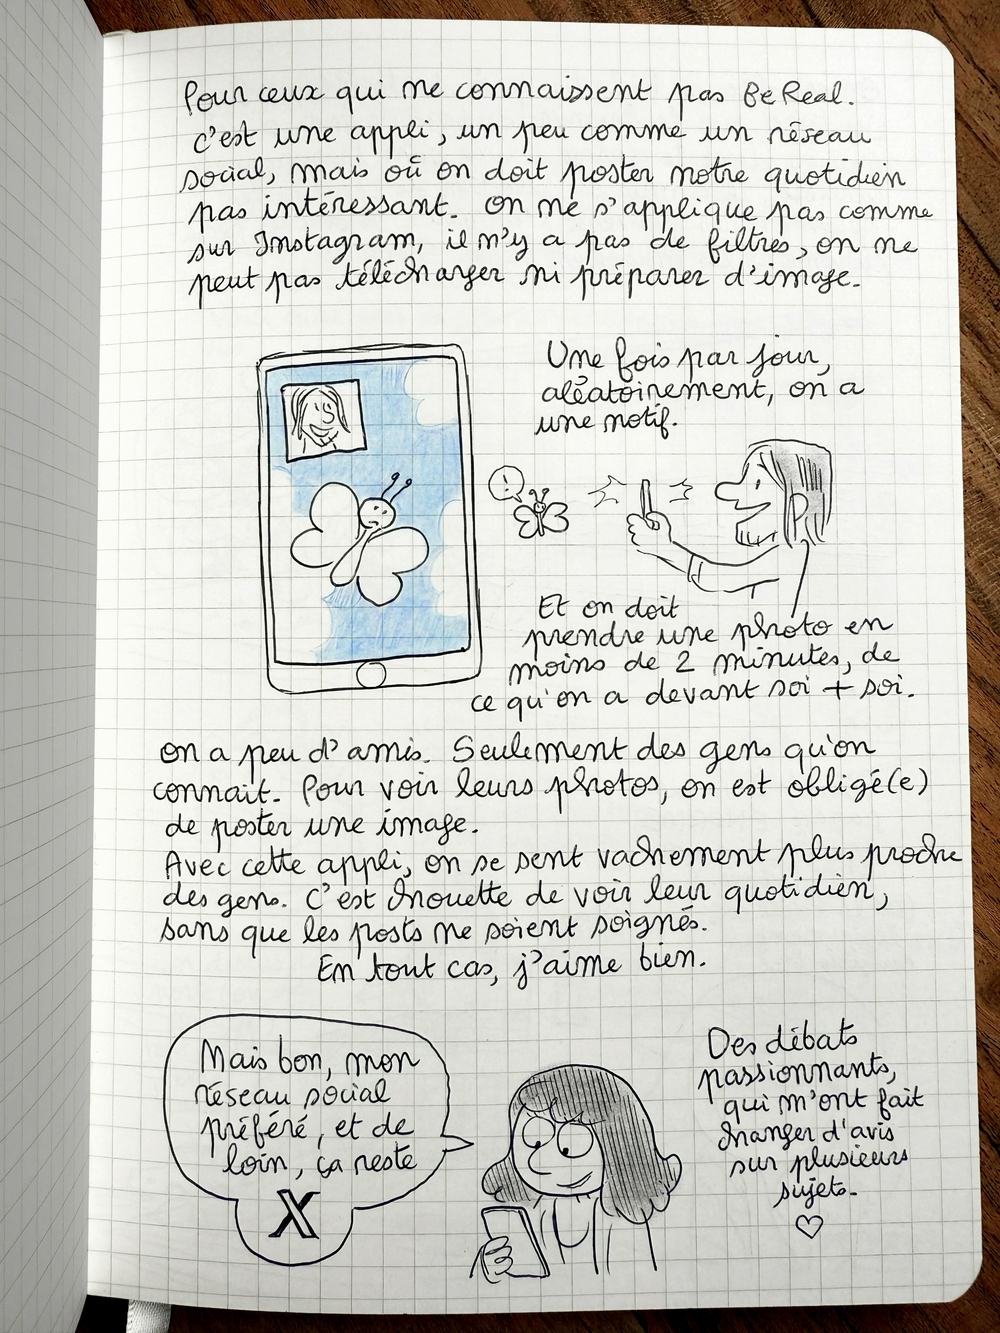 Pour ceux qui ne connaissent pas BeReal.
C'est une appli, un peu comme un réseau
social, mais où on doit poster notre quotidien
pas intéressant. On ne s'applique pas comme
sur Instagram, il n'y a pas de filtres, on ne
peut pas télécharger ni préparer d'image.
Une fois par jour,
aléatoirement, on a
une notif.
!
Et on doit
prendre une photo en
moins de 2 minutes, de
ce qu'on a devant soi + soi.
On a peu d'amis. Seulement des gens qu'on
connait. Pour voir leurs photos, on est obligé(e)
de poster une image.
Avec cette appli, on se sent vachement plus proche
des gens. C'est chouette de voir leur quotidien,
sans que les posts ne soient soignés.
En tout cas, j'aime bien.
Mais bon, mon
réseau social
préféré, et de
loin, ça reste
X
Des débats
passionnants,
qui m'ont fait
changer d'avis
sur plusieurs
sujets.
♡